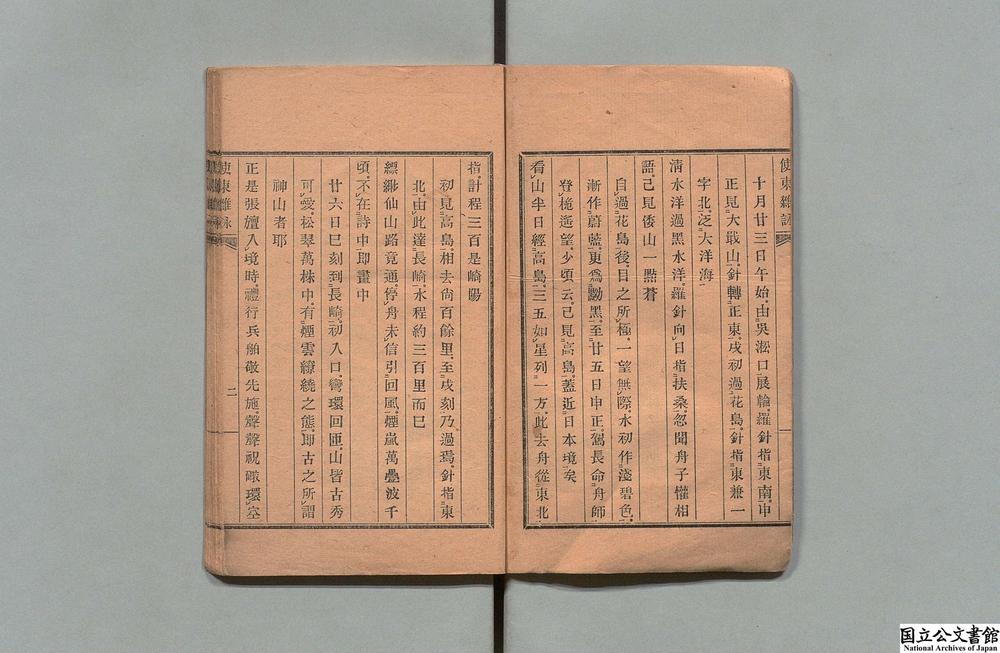 使東雜詠
十月廿三日午始由吳淞口展輪羅針指東南申
正見大戢山針轉正東戌初過花島針指東兼一
字北泛大洋海
淸水洋過黑水洋羅針向日指扶桑忽聞舟子懽相
語己見倭山一㸃蒼
自過花島後日之所極一望無際水初作淺碧色
漸作蔚藍更爲黝黑至廿五日申正駕長命舟師
登桅遙望少頃云己見高島蓋近日本境矣
看山半日經高島三五如星列一方此去舟從東北
指計程三百是崎陽
初見高島相去尙百餘里至戌刻乃過焉針指東
北由此達長崎水程約三百里而巳
縹緲仙山路竟通停舟未信引回風煙嵐萬疊波千
頃不在詩中卽畫中
廿六日巳刻到長崎初入口彎環回匝山皆古秀
可愛松琴萬株中有煙雲繚繞之態卽古之所謂
神山者耶
正是張旜入境時禮行兵舶敬先施聲聲祝礮環空
使東雜詠
二
国立公文書館
National Archives of Japan